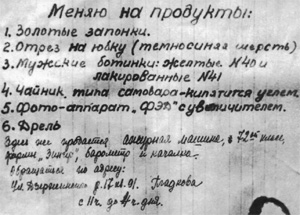 Меняю на продукты:
1. Золотые запонки.
2. Отрез на юбку (темносиняя шерсть)
3. Мужские ботинки: желтые N40 и
лакированные N41
4. Чайник типа самовара-кипятится углем.
5. Фото-аппарат "ФЭД" с увеличителем.
6. Дрель
Здесь же продается ажурная машина, в 72ой класс,
фирмы "Зингер", барометр и качалка.
Обращаться по адресу:
Ул. Дзержинского д. 17 кв. 91. Гладкова
с 11ч. до 4ч. дня.